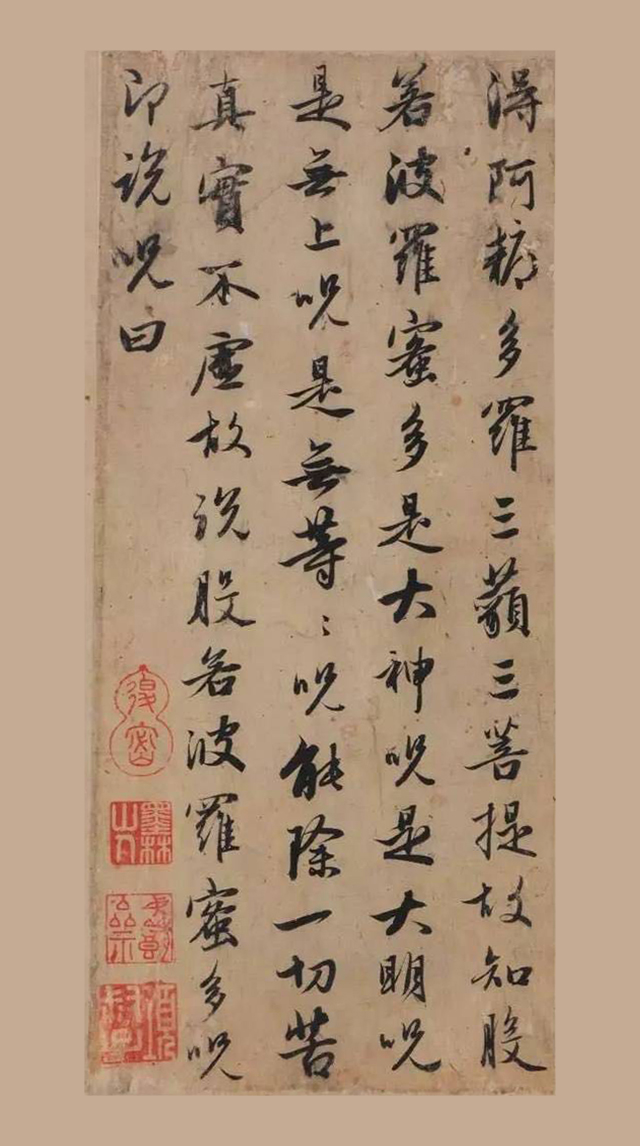 得阿耨多羅三藐三菩提故知般
若波羅蜜多是大神呪是大明呪
是無上呪是無等〻呪能除一切苦
真實不虛故說般若波羅蜜多呪
即說呪曰
墨林山人